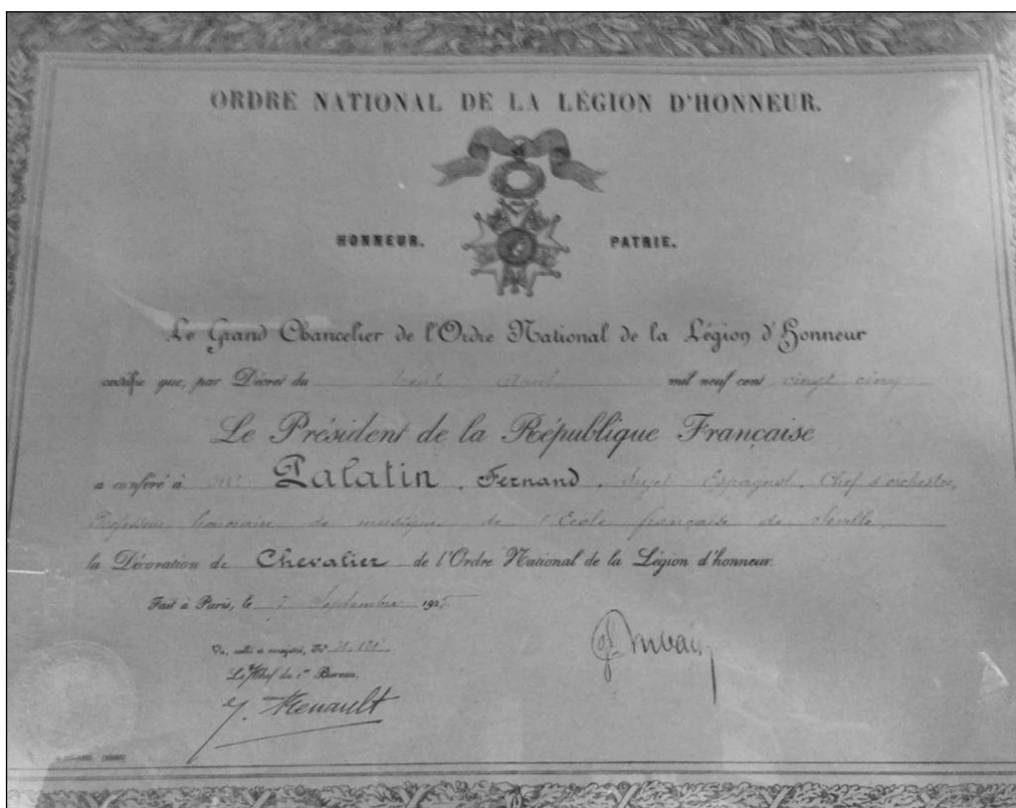 ORDRE NATIONAL DE LA LÉGION D'HONNEUR.
HONNEUR. PATRIE.
Le Grand Chancelier de l'Ordre National de la Légion d'Honneur
certifie que, par Décret du trente Août mil neuf cent vingt cinq
Le Président de la République Française
a conféré à Palatin, Fernand, Sujet Espagnol, Chef d'orchestre,
Professeur honoraire de musique de l'Ecole française de Séville,
la Décoration de Chevalier de l'Ordre National de la Légion d'honneur.
Fait à Paris, le 7 Septembre 1925
Vu, scellé et enregistré, N°
Le Chef du 1er Bureau,